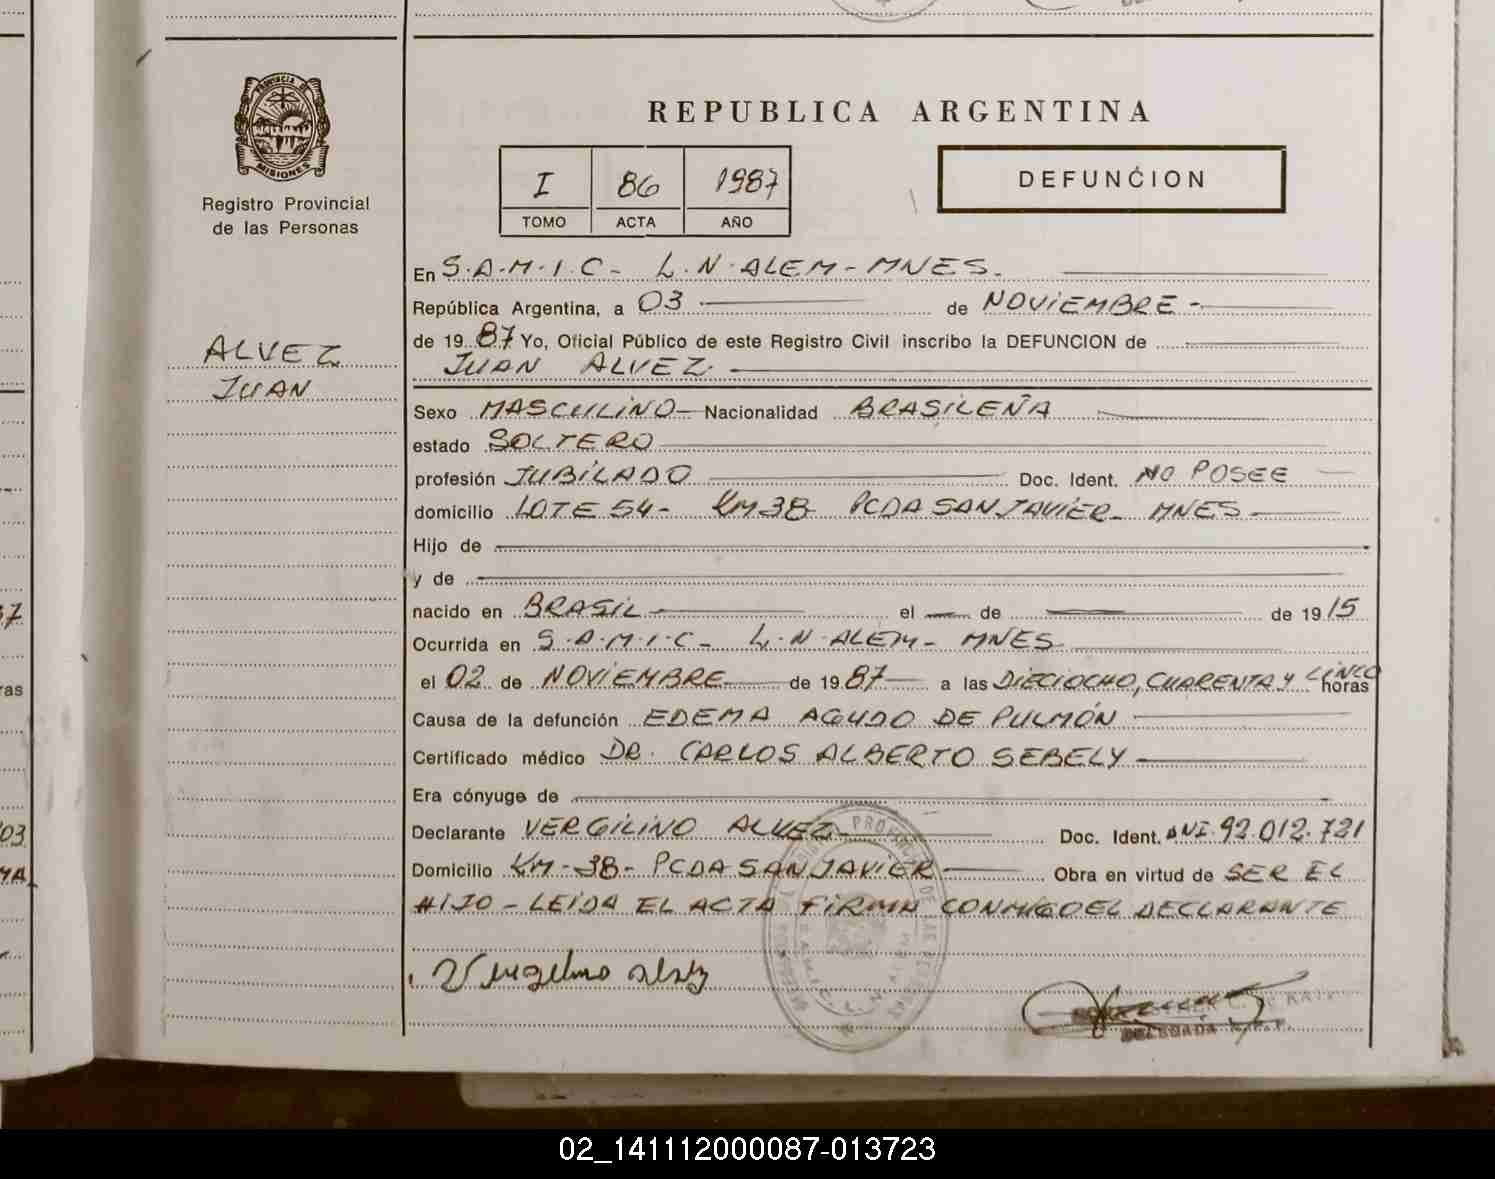 PROVINCIA DE
MISIONES
Registro Provincial
de las Personas
ALVEZ
JUAN
REPUBLICA ARGENTINA
I 86 1987
TOMO ACTA AÑO
DEFUNCION
En S.A.M.I.C- L.N.ALEM-MNES.
República Argentina, a 03 de NOVIEMBRE-
de 19 87 Yo, Oficial Público de este Registro Civil inscribo la DEFUNCION de
JUAN ALVEZ.
Sexo MASCULINO- Nacionalidad BRASILEÑA
estado SOLTERO
profesión JUBILADO Doc. Ident. NO POSEE
domicilio LOTE 54- KM38 PCDA SAN JAVIER- MNES
Hijo de
y de
nacido en BRASIL el de de 19 15
Ocurrida en S.A.M.I.C- L.N.ALEM- MNES
el 02 de NOVIEMBRE de 19 87 a las DIECIOCHO, CUARENTA Y CINCO horas
Causa de la defunción EDEMA AGUDO DE PULMÓN
Certificado médico DR. CARLOS ALBERTO SEBELY
Era cónyuge de
Declarante VERGILINO ALVEZ Doc. Ident. DNI.92.012.721
Domicilio KM-38- PCDA SAN JAVIER Obra en virtud de SER EL
HIJO-LEIDA EL ACTA FIRMA CONMIGO EL DECLARANTE
DELEGADA R.P.P.
37
ras
03
MA
02_141112000087-013723